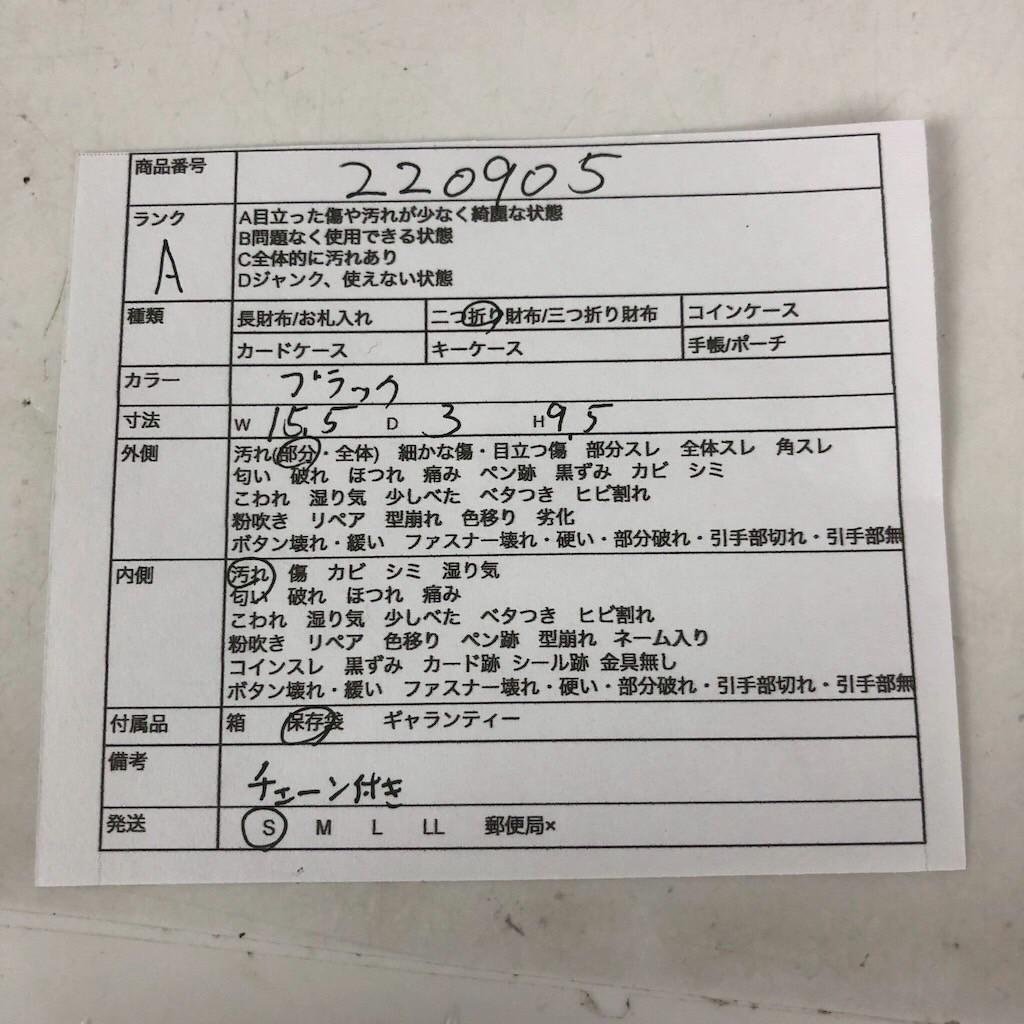 商品番号 220905
ランク A
A目立った傷や汚れが少なく綺麗な状態
B問題なく使用できる状態
C全体的に汚れあり
Dジャンク、使えない状態
種類 長財布/お札入れ 二つ折り財布/三つ折り財布 コインケース
カードケース キーケース 手帳/ポーチ
カラー ブラック
寸法 W 15.5 D 3 H 9.5
外側 汚れ(部分・全体) 細かな傷・目立つ傷 部分スレ 全体スレ 角スレ
匂い 破れ ほつれ 痛み ペン跡 黒ずみ カビ シミ
こわれ 湿り気 少しべた ベタつき ヒビ割れ
粉吹き リペア 型崩れ 色移り 劣化
ボタン壊れ・緩い ファスナー壊れ・硬い・部分破れ・引手部切れ・引手部無
内側 汚れ 傷 カビ シミ 湿り気
匂い 破れ ほつれ 痛み
こわれ 湿り気 少しべた ベタつき ヒビ割れ
粉吹き リペア 色移り ペン跡 型崩れ ネーム入り
コインスレ 黒ずみ カード跡 シール跡 金具無し
ボタン壊れ・緩い ファスナー壊れ・硬い・部分破れ・引手部切れ・引手部無
付属品 箱 保存袋 ギャランティー
備考 チェーン付き
発送 S M L LL 郵便局×